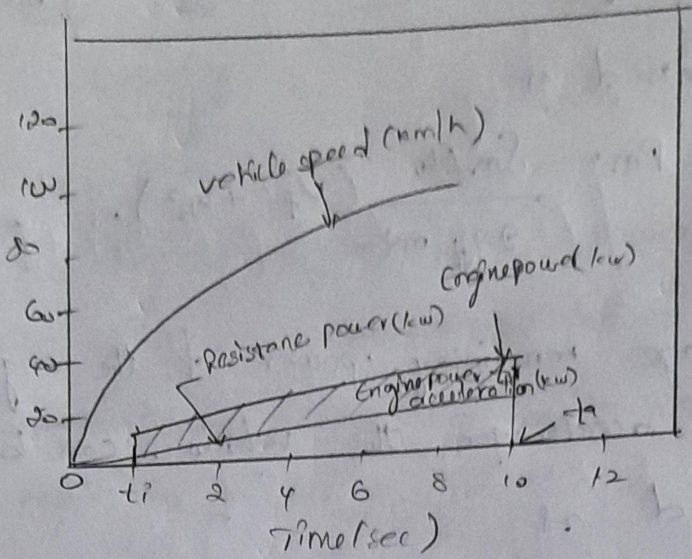 120
100
80
60
40
20
0
vehicle speed (km/h)
Engine power (kw)
Resistane power (kw)
Engine power
acceleration (kw)
ta
ti
2
4
6
8
10
12
Time (sec)